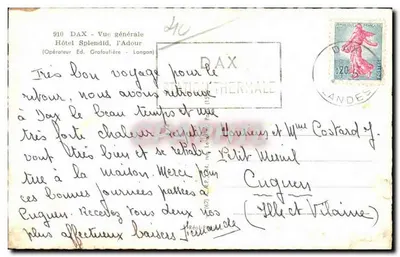 910 DAX - Vue générale
Hôtel Splendid, l'Adour
(Opérateur Ed. Grafouflière - Langon)
40
DAX
THERMALE
D
LANDES
0,20
Très bon voyage pour le
retour, nous avons retrouvé
à Dax le beau temps et une
très forte chaleur
vont très bien et se
à la maison. Merci pour
ces bonnes journées passées à
Cuguen. Recevez vous deux nos
plus affectueux baisers Fernande
Monsieur et Mme Costard J.
Petit Mesnil
Cuguen
(Ille et Vilaine)